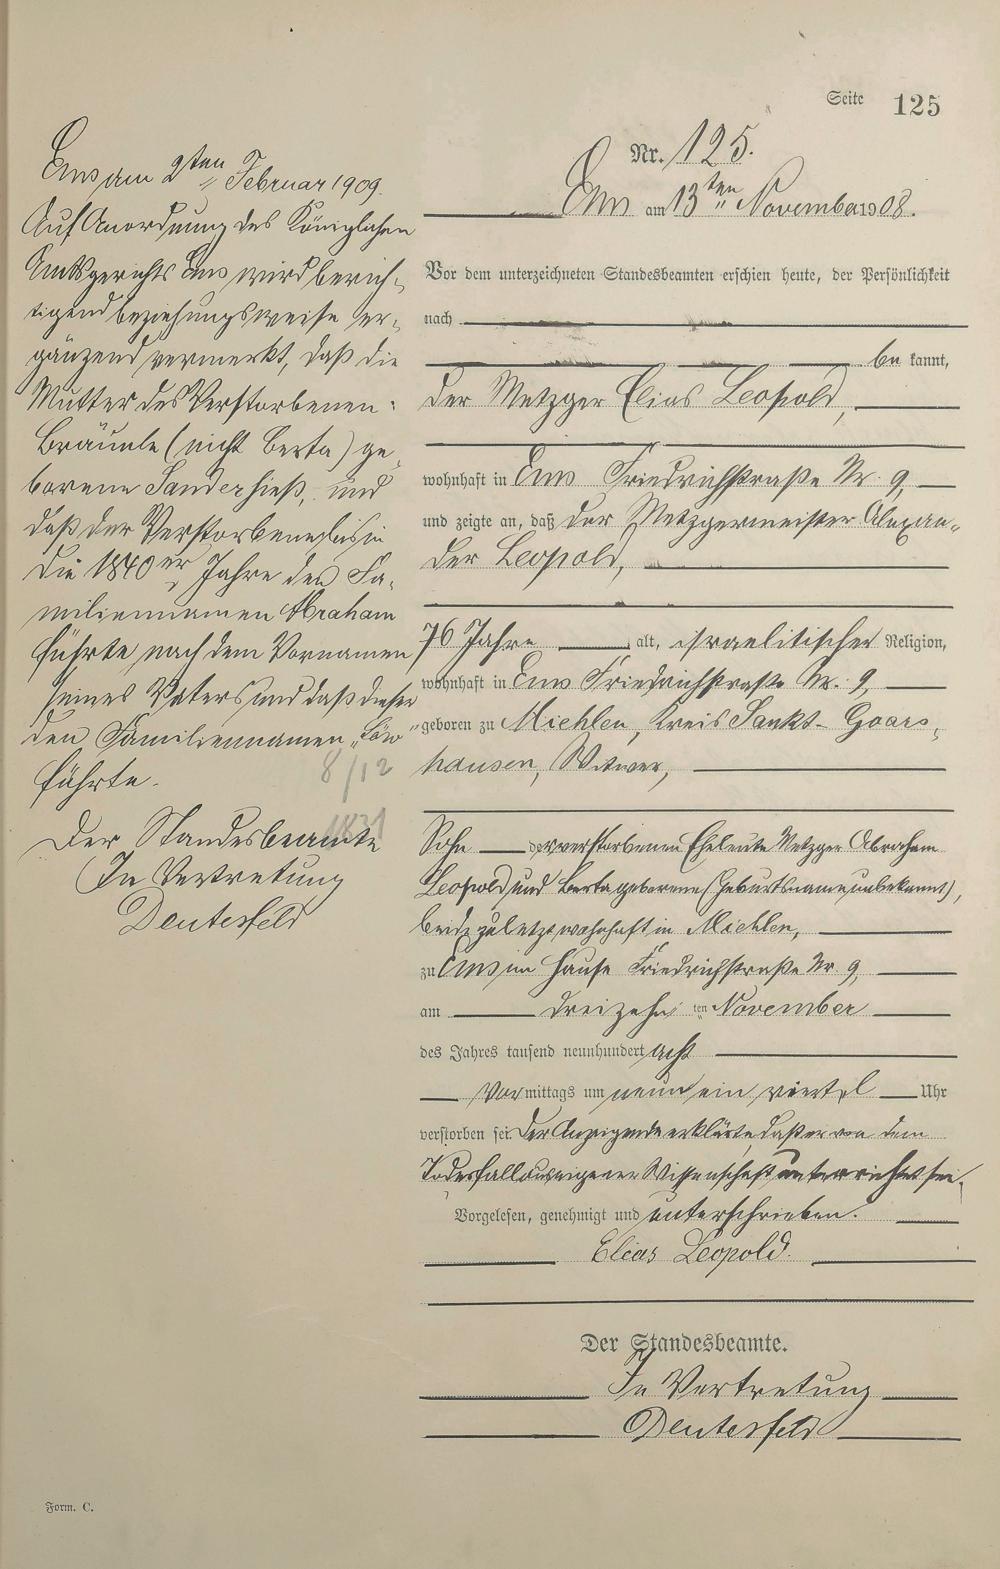 Seite 125
Nr. 125.
Ems am 13ten November 1908.
Vor dem unterzeichneten Standesbeamten erschien heute, der Persönlichkeit
nach
be kannt,
der Metzger Elias Leopold,
wohnhaft in Ems Friedrichstraße Nr. 9,
und zeigte an, daß der Metzgermeister Alexan-
der Leopold,
76 Jahre alt, israelitischer Religion,
wohnhaft in Ems Friedrichstraße Nr. 9,
geboren zu Miehlen, Kreis Sankt-Goars-
hausen, Witwer,
Sohn der verstorbenen Eheleute Metzger Abraham
Leopold und Berta geborene (Geburtsname unbekannt),
beide zuletzt wohnhaft in Miehlen,
zu Ems im Hause Friedrichstraße Nr. 9,
am dreizehn ten November
des Jahres tausend neunhundert acht
Vor mittags um neun ein viertel Uhr
verstorben sei. Der Anzeigende erklärte, daß er von dem
Todesfall aus eigener Wissenschaft unterrichtet sei.
Vorgelesen, genehmigt und unterschrieben.
Elias Leopold.
Der Standesbeamte.
In Vertretung
Deutesfeld
Ems am 2ten Februar 1909.
Auf Anordnung des Königlichen
Amtsgerichts Ems wird berich-
tigend beziehungsweise er-
gänzend vermerkt, daß die
Mutter des Verstorbenen:
Bräunle (nicht Berta) ge-
borene Sander hieß, und
daß der Verstorbene bis in
die 1840er Jahre den Fa-
miliennamen Abraham
führte nach dem Vornamen
seines Vaters und daß dieser
den Familiennamen "Löw"
führte.
8/12
1831
Der Standesbeamte
In Vertretung
Deutesfeld
Form. C.